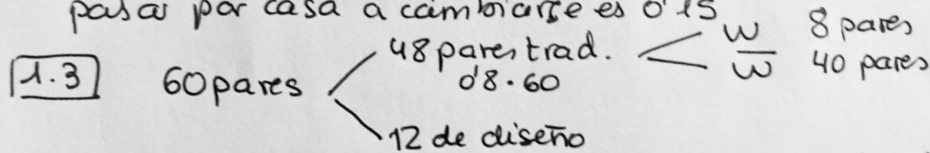 pasar por casa a cambiarse es 0'15
1.3 60 pares 48 pares trad. W 8 pares
0'8·60 W̅ 40 pares
12 de diseño